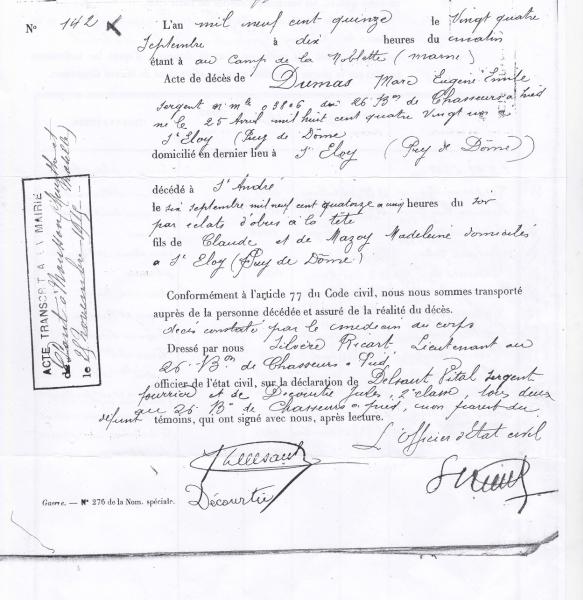 No 142 L'an mil neuf cent quinze le Vingt quatre
Septembre à dix heures du matin
étant à au Camp de la Noblette (Marne)
Acte de décès de Dumas Marc Eugène Emile
Sergent n° mle 03806 du 26 Bon de Chasseurs à pied
né le 25 Avril mil huit cent quatre vingt un à
St Eloy (Puy de Dôme
domicilié en dernier lieu à St Eloy (Puy de Dôme)
décédé à St André
le six septembre mil neuf cent quatorze à heures du soir
par éclats d'obus à la tête
fils de Claude et de Mazoy Madeleine domiciliés
à St Eloy (Puy de Dôme)
Conformément à l'article 77 du Code civil, nous nous sommes transporté
auprès de la personne décédée et assuré de la réalité du décès.
décès constaté par le médecin du corps
Dressé par nous Silvère Ricart, Lieutenant au
26 Bon de Chasseurs à Pied
officier de l'état civil, sur la déclaration de Delsaut Vital Sergent
fourrier et de Decourtie Jules, 2e classe, tous deux
au 26 Bon de Chasseurs à pied, non parent du
défunt témoins, qui ont signé avec nous, après lecture.
L'Officier d'Etat civil
Décourtie
Guerre. — N° 276 de la Nom. spéciale.
ACTE TRANSCRIT A LA MAIRIE
de Pont à Mousson
le novembre